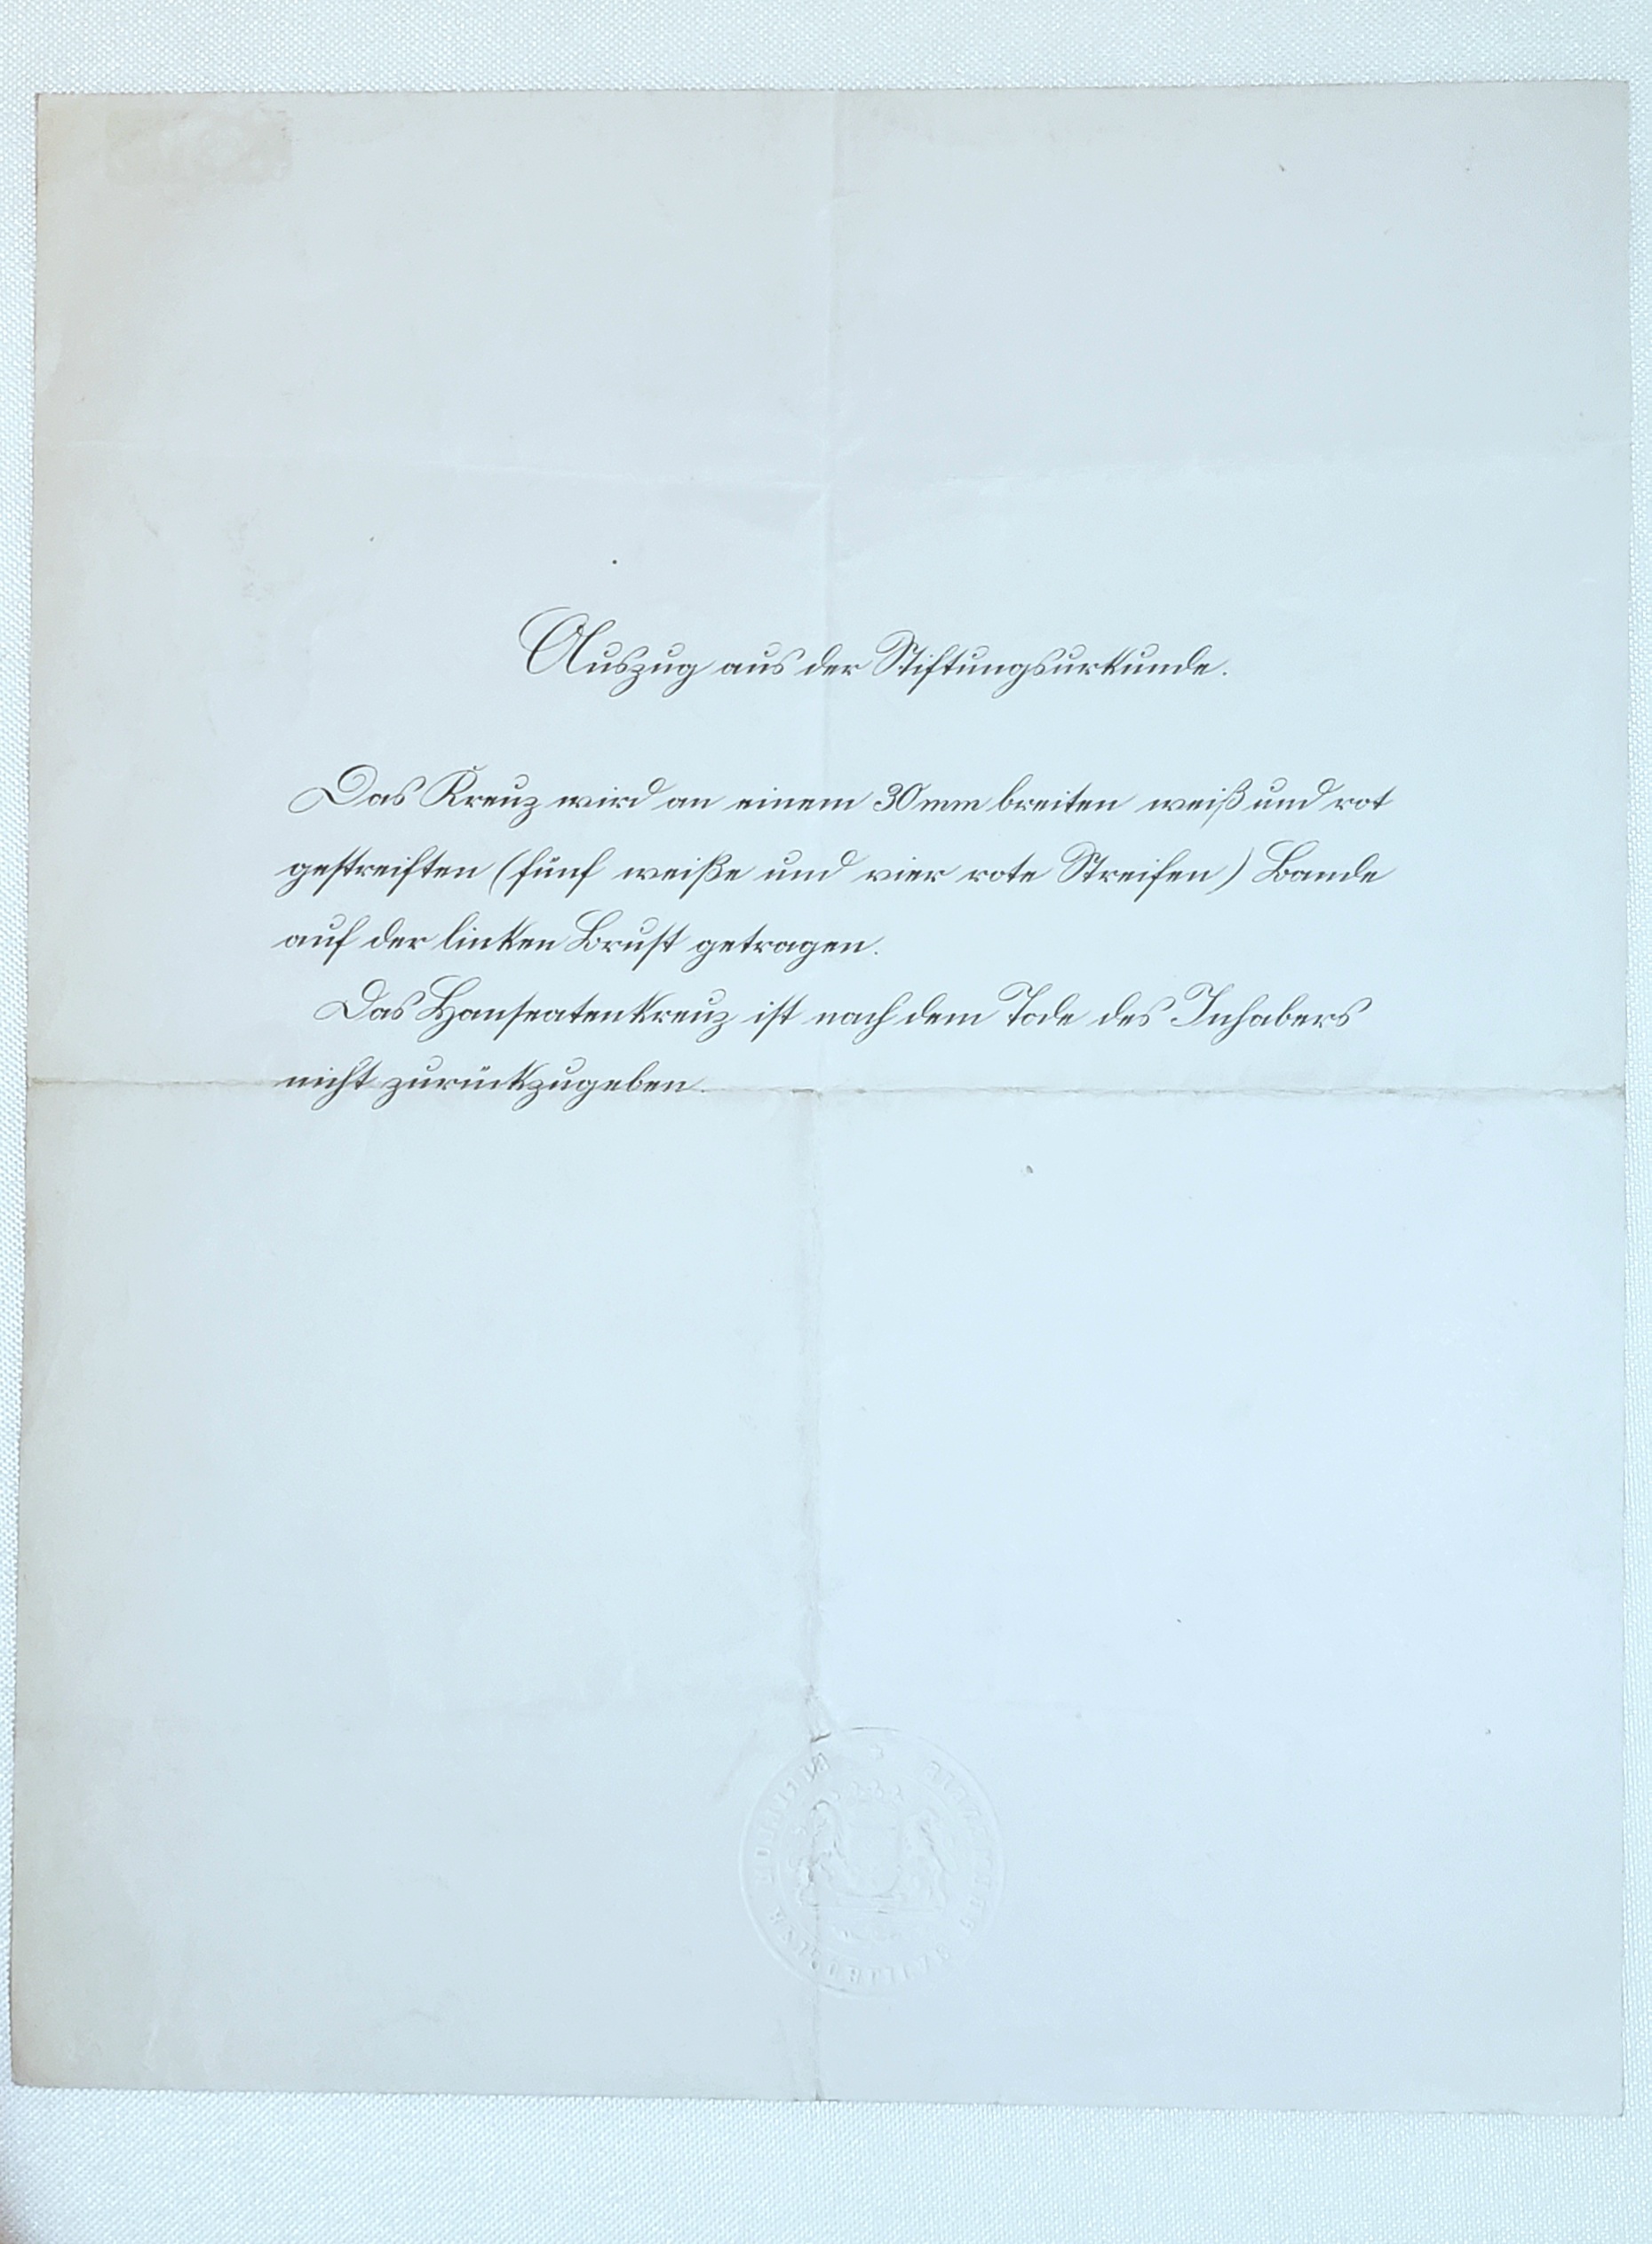 Auszug aus der Stiftungsurkunde.
Das Kreuz wird an einem 30 mm breiten weiß und rot
gestreiften (fünf weiße und vier rote Streifen) Bande
auf der linken Brust getragen.
Das Hanseatenkreuz ist nach dem Tode des Inhabers
nicht zurückzugeben.